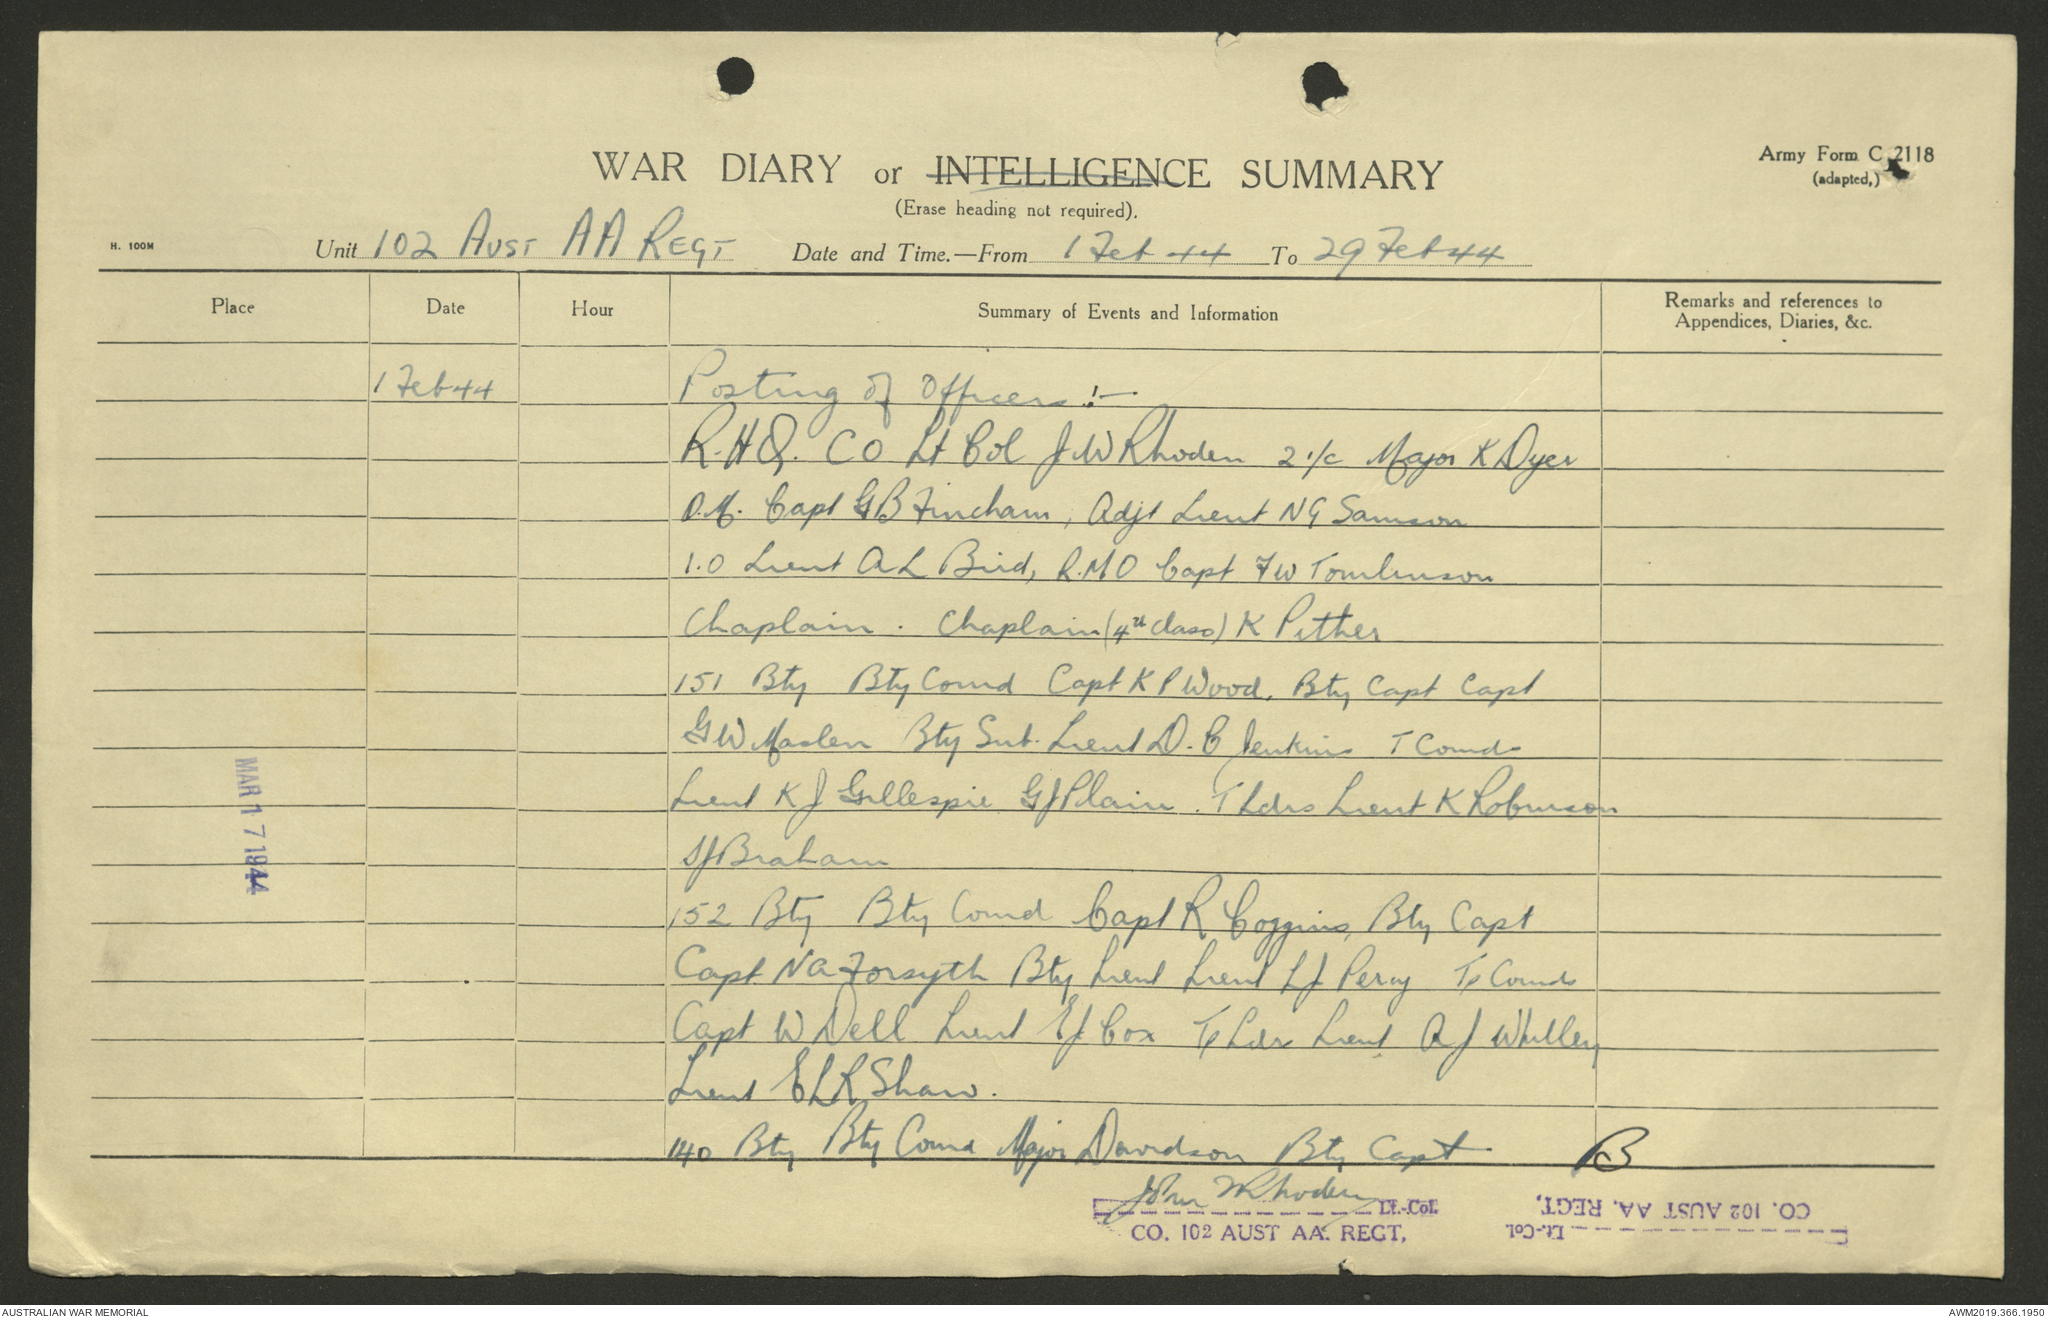 Army Form C 2118
(adapted,)
WAR DIARY or INTELLIGENCE SUMMARY
(Erase heading not required).
H. 100M
Unit 102 AUST AA REGT Date and Time.—From 1 Feb 44 To 29 Feb 44
Place Date Hour Summary of Events and Information Remarks and references to
Appendices, Diaries, &c.
1 Feb 44 Posting of Officers :-
R.H.Q. CO Lt Col J W Rhoden 2 i/c Major K Dyer
Q.M. Capt G B Fincham, Adjt Lieut N G Samson
I.O Lieut A L Bird, R.M O Capt F W Tomlinson
Chaplain . Chaplain (4th Class) K Pither
151 Bty Bty Comd Capt K P Wood, Bty Capt Capt
G W Maslen Bty Sub. Lieut D. C Jenkins T Comds
Lieut K J Gillespie G J Plain . T Ldrs Lieut K Robinson
S J Braham
152 Bty Bty Comd Capt R Coggins, Bty Capt
Capt N A Forsyth Bty Lieut Lieut L J Percy Tp Comds
Capt W Dell Lieut E J Cox Tp Ldr Lieut A J Whilley
Lieut E L R Shaw.
140 Bty Bty Comd Major Davidson Bty Capt B
John W Rhoden Lt.-Col.
CO. 102 AUST AA. REGT.
Lt.-Col.
CO. 102 AUST AA. REGT.
MAR 17 1944
AUSTRALIAN WAR MEMORIAL
AWM2019.366.1950